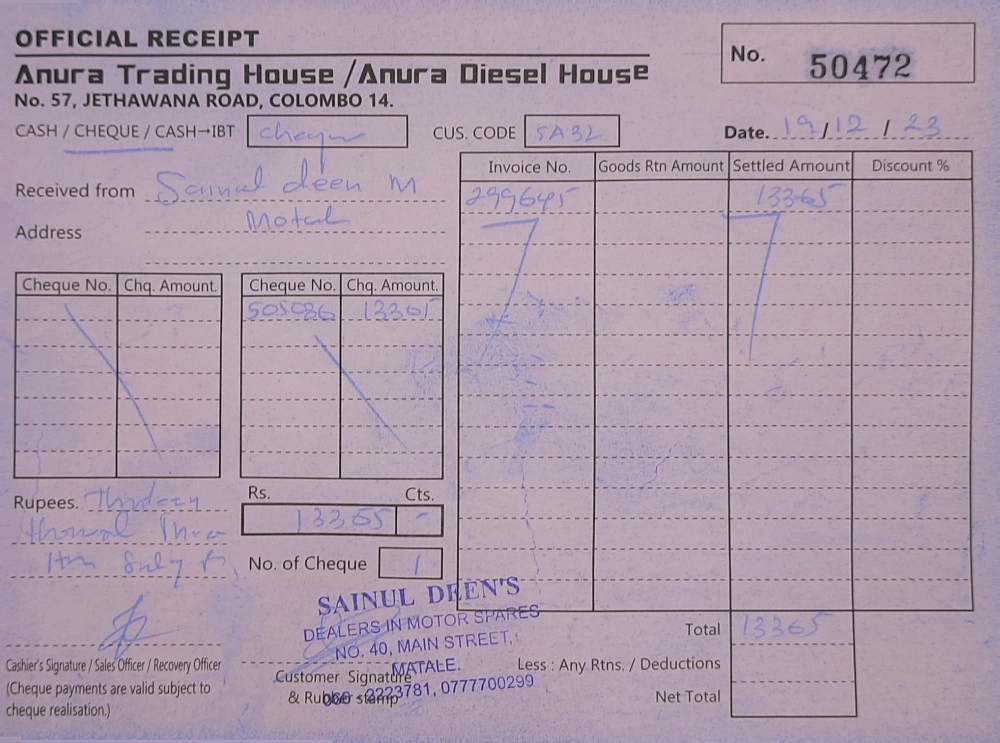 OFFICIAL RECEIPT
Anura Trading House /Anura Diesel House
No. 57, JETHAWANA ROAD, COLOMBO 14.
No. 50472
CASH / CHEQUE / CASH→IBT cheque
CUS. CODE SA32
Date. 19/12/23
Received from Sainul deen M
Address
Invoice No. Goods Rtn Amount Settled Amount Discount %
299645 13365
Cheque No. Chq. Amount.
Cheque No. Chq. Amount.
505086 13365
Rupees.
Rs. Cts.
13365 -
No. of Cheque 1
SAINUL DEEN'S
DEALERS IN MOTOR SPARES
NO. 40, MAIN STREET,
MATALE.
066 - 2223781, 0777700299
Cashier's Signature / Sales Officer / Recovery Officer
(Cheque payments are valid subject to
cheque realisation.)
Customer Signature
& Rubber stamp
Total 13365
Less : Any Rtns. / Deductions
Net Total